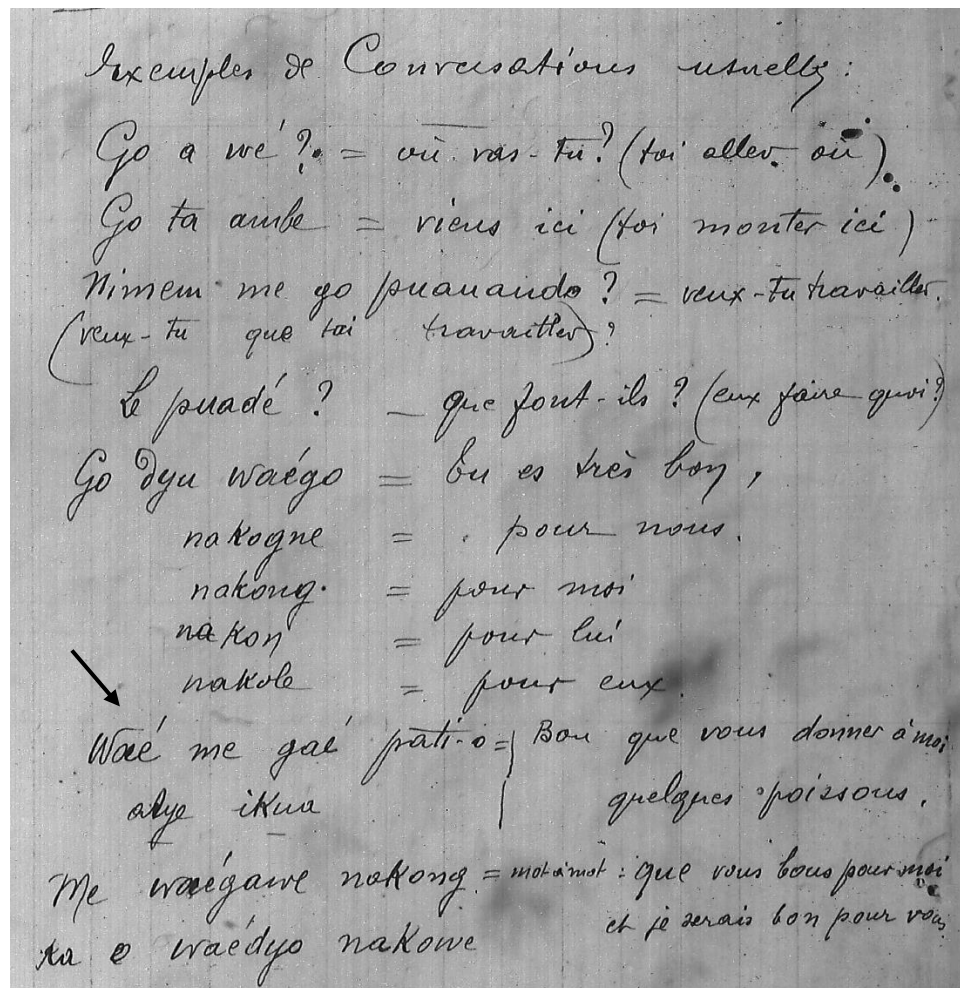 Exemples de Conversations usuelles :
Go a wé ? = où vas-tu ? (toi aller où)
Go ta ambe = viens ici (toi monter ici)
Nimem me go puauando ? = veux-tu travailler.
(veux-tu que toi travailler) ?
Le puadé ? — que font-ils ? (eux faire quoi ?)
Go dyu waégo = tu es très bon,
nakogne = pour nous.
nakong. = pour moi
nakon = pour lui
nakole = pour eux.
Waé me gaé pati-o = Bon que vous donner à moi
alye ikua quelques poissons.
Me waégawe nakong = mot à mot : que vous bons pour moi
ka o waédyo nakowe et je serais bon pour vous